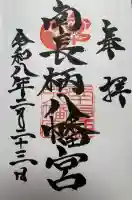 奉拝
南長柄八幡宮
令和八年二月二十三日